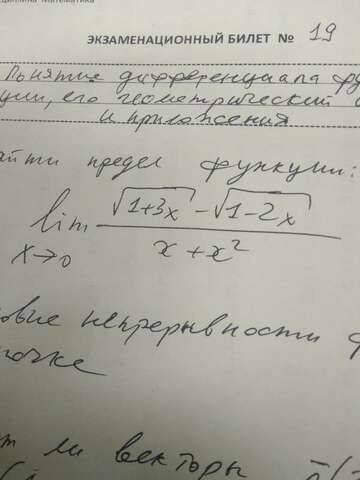 Математика
ЭКЗАМЕНАЦИОННЫЙ БИЛЕТ № 19
Понятие дифференциала фу
ции, его геометрический
и приложения
айти предел функции:
lim √1+3x - √1-2x
x→0 x + x²
овие непрерывности ф
точке
т ли векторы ā(